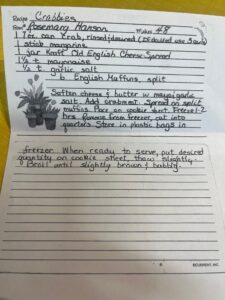 Recipe Crabbies
From Rosemary Hanson Makes 48
1 7oz. can Crab, rinsed/drained
1 stick margarine
1 jar Kraft Old English Cheese Spread
1½ t mayonnaise
½ t garlic salt
6 English Muffins, split
Soften cheese & butter w mayo/garlic
salt. Add crabmeat. Spread on split
muffins. Place on cookie sheet. Freeze 1-2
hrs. Remove from freezer, cut into
quarters. Store in plastic bags in
freezer. When ready to serve, put desired
quantity on cookie sheet, thaw slightly.
Broil until slightly brown & bubbly.